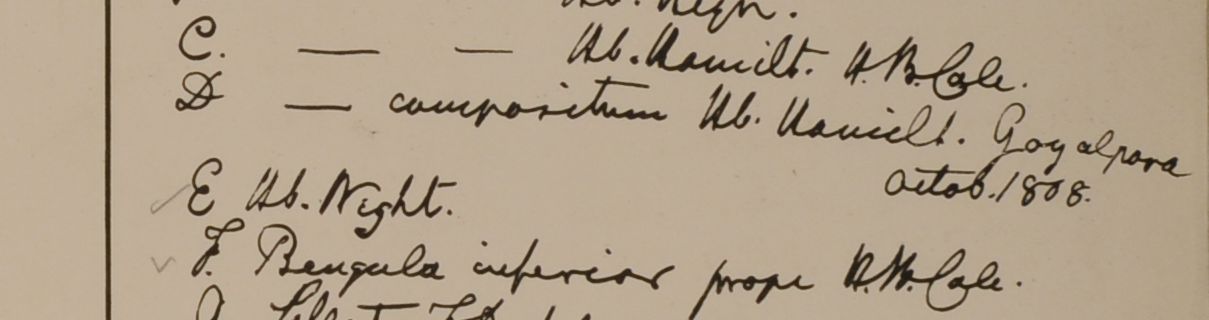 Hb. Wight.
C. — — Hb. Hamilt. H. B. Calc.
D — compositum Hb. Hamilt. Goyalpara
Octob. 1808.
E Hb. Wight.
F. Bengala inferior prope H. B. Calc.